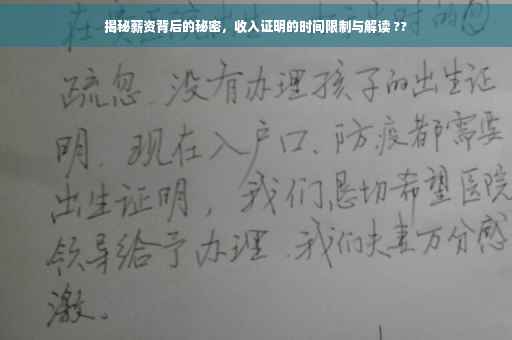 揭秘薪资背后的秘密，收入证明的时间限制与解读 ??
疏忽、没有办理孩子的出生证
明、现在入户口、防疫都需要
出生证明，我们恳切希望医院
领导给予办理、我们夫妻万分感
激。